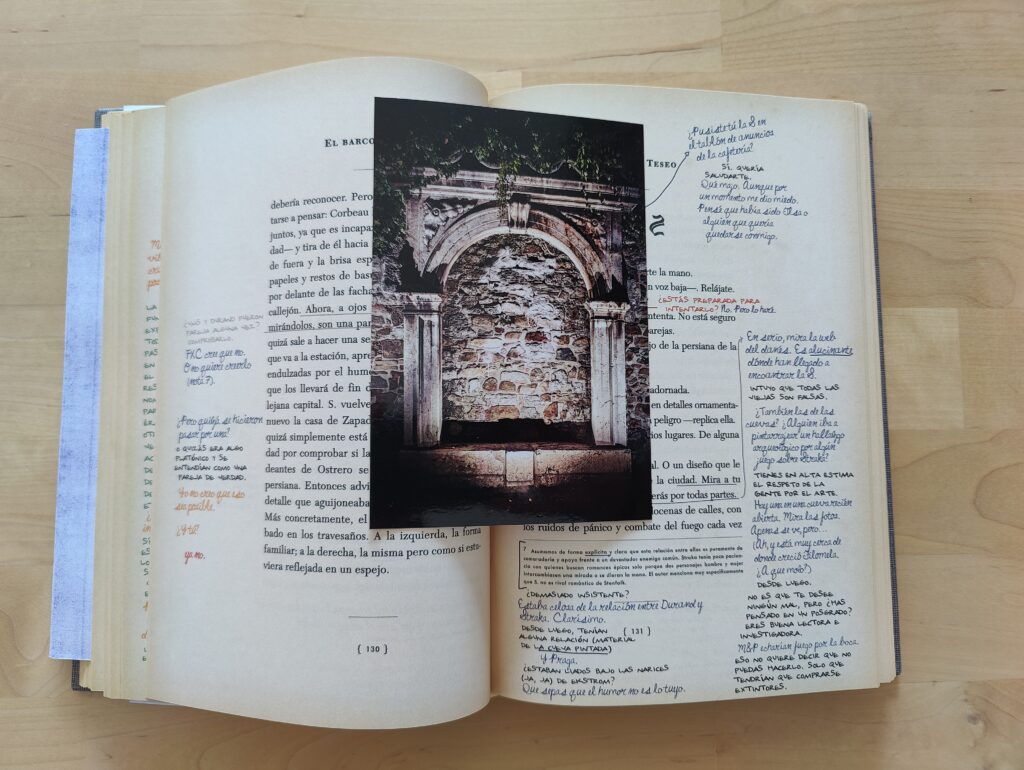 EL BARCO
debería reconocer. Pero
tarse a pensar: Corbeau
juntos, ya que es incapa
dad— y tira de él hacia
de fuera y la brisa esp
papeles y restos de bas
por delante de las facha
callejón. Ahora, a ojos
mirándolos, son una par
quizá sale a hacer una se
que va a la estación, apre
endulzadas por el humo
que los llevará de fin d
lejana capital. S. vuelve
nuevo la casa de Zapad
quizá simplemente está
dad por comprobar si la
deantes de Ostrero se
persiana. Entonces advi
detalle que aguijoneaba
Más concretamente, el
bado en los travesaños. A la izquierda, la forma
familiar; a la derecha, la misma pero como si estu-
viera reflejada en un espejo.
{ 130 }
PAREJA ALGUNA VEZ?
COMPROBARLO.
FXC cree que no.
O no quiere creerlo
(nota 7).
¿Pero quizá se hicieron
pasar por una?
O QUIZÁS ERA ALGO
PLATÓNICO Y SE
ENTENDÍAN COMO UNA
PAREJA DE VERDAD.
Yo no creo que eso
sea posible.
¿Y tú?
ya no.
TESEO
¿Pusiste tú la S en
el tablón de anuncios
de la cafetería?
SÍ. QUERÍA
SALUDARTE.
Qué majo. Aunque por
un momento me dio miedo.
Pensé que había sido Ilsa o
alguien que quería
quedarse conmigo.
rte la mano.
n voz baja—. Relájate.
¿ESTÁS PREPARADA PARA
INTENTARLO? No. Pero lo haré.
ntenta. No está seguro
parejas.
jo de la persiana de la
adornada.
n en detalles ornamenta-
peligro —replica ella.
ios lugares. De alguna
al. O un diseño que le
la ciudad. Mira a tu
erás por todas partes.
ocenas de calles, con
los ruidos de pánico y combate del fuego cada vez
7 Asumamos de forma explícita y clara que esta relación entre ellos es puramente de
camaradería y apoyo frente a un devastador enemigo común. Straka tenía poca pacien-
cia con quienes buscan romances épicos solo porque dos personajes hombre y mujer
intercambiasen una mirada o se dieran la mano. El autor menciona muy específicamente
que S. no es rival romántico de Stenfalk.
¿DEMASIADO INSISTENTE?
Estaba celosa de la relación entre Durand y
Straka. Clarísimo.
DESDE LUEGO, TENÍAN
ALGUNA RELACIÓN (MATERIAL
DE LA CUEVA PINTADA)
{ 131 }
Y Praga.
¿ESTABAN LIADOS BAJO LAS NARICES
(JA, JA) DE EKSTROM?
Que sepas que el humor no es lo tuyo.
En serio, mira la web
del danés. Es alucinante
dónde han llegado a
encontrar la S.
INTUYO QUE TODAS LAS
VIEJAS SON FALSAS.
¿También las de las
cuevas? ¿Alguien iba a
pintarrajear un hallazgo
arqueológico por algún
juego sobre Straka?
TIENES EN ALTA ESTIMA
EL RESPETO DE LA
GENTE POR EL ARTE.
Hay una en una cueva recién
abierta. Mira las fotos.
Apenas se ve, pero...
¡Ah, y está muy cerca de
donde creció Filomela.
¿A que mola?
DESDE LUEGO.
NO ES QUE TE DESEE
NINGÚN MAL, PERO ¿HAS
PENSADO EN UN POSGRADO?
ERES BUENA LECTORA E
INVESTIGADORA.
M&P echarían fuego por la boca.
ESO NO QUIERE DECIR QUE NO
PUEDAS HACERLO. SOLO QUE
TENDRÍAN QUE COMPRARSE
EXTINTORES.